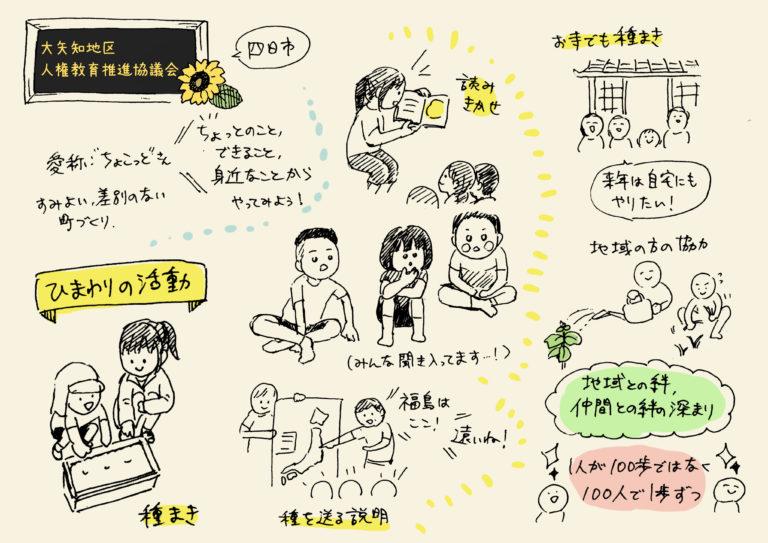 大矢知地区
人権教育推進協議会
四日市
愛称:ちょこっどさん
ちょっとのこと,
できること,
身近なことから
やってみよう!
すみよい,差別のない
町づくり.
ひまわりの活動
種まき
読み
きかせ
(みんな聞き入ってます…!)
福島は
ここ!
遠いね!
種を送る説明
お寺でも種まき
来年は自宅にも
やりたい!
地域の方の協力
地域との絆,
仲間との絆の深まり
1人が100歩ではなく
100人で1歩ずつ